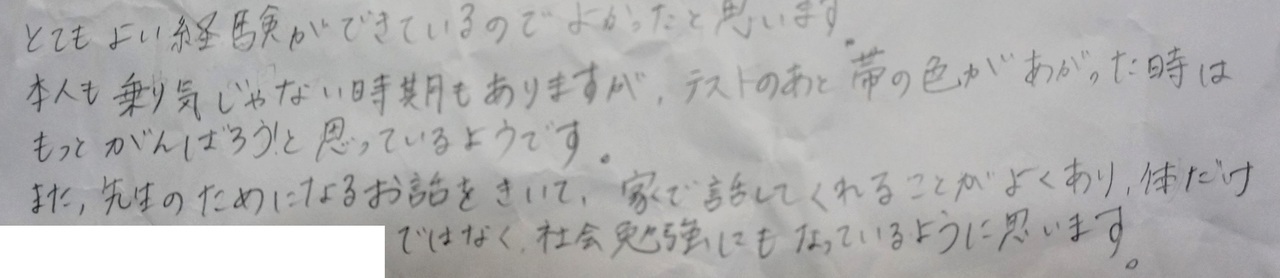 とてもよい経験ができているのでよかったと思います。
本人も乗り気じゃない時期もありますが、テストのあと帯の色があがった時は
もっとがんばろう!と思っているようです。
また、先生のためになるお話をきいて、家で話してくれることがよくあり、体だけ
ではなく、社会勉強にもなっているように思います。